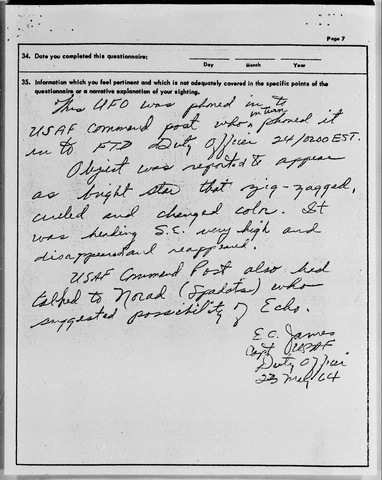 Page 7
34. Date you completed this questionnaire:
Day Month Year
35. Information which you feel pertinent and which is not adequately covered in the specific points of the
questionnaire or a narrative explanation of your sighting.
This UFO was phoned in to
USAF Command post who in turn phoned it
in to FTD Duty Officer 24/0200 EST.
Object was reported to appear
as bright star that zig-zagged,
circled and changed color. It
was heading S.E. very high and
disappeared and reappeared.
USAF Command Post also had
talked to Norad (Spadats) who
suggested possibility of Echo.
E.C. James
Capt USAF
Duty Officer
23 May 64